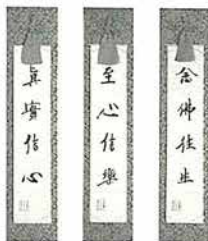 念佛往生
至心信樂
眞實信心